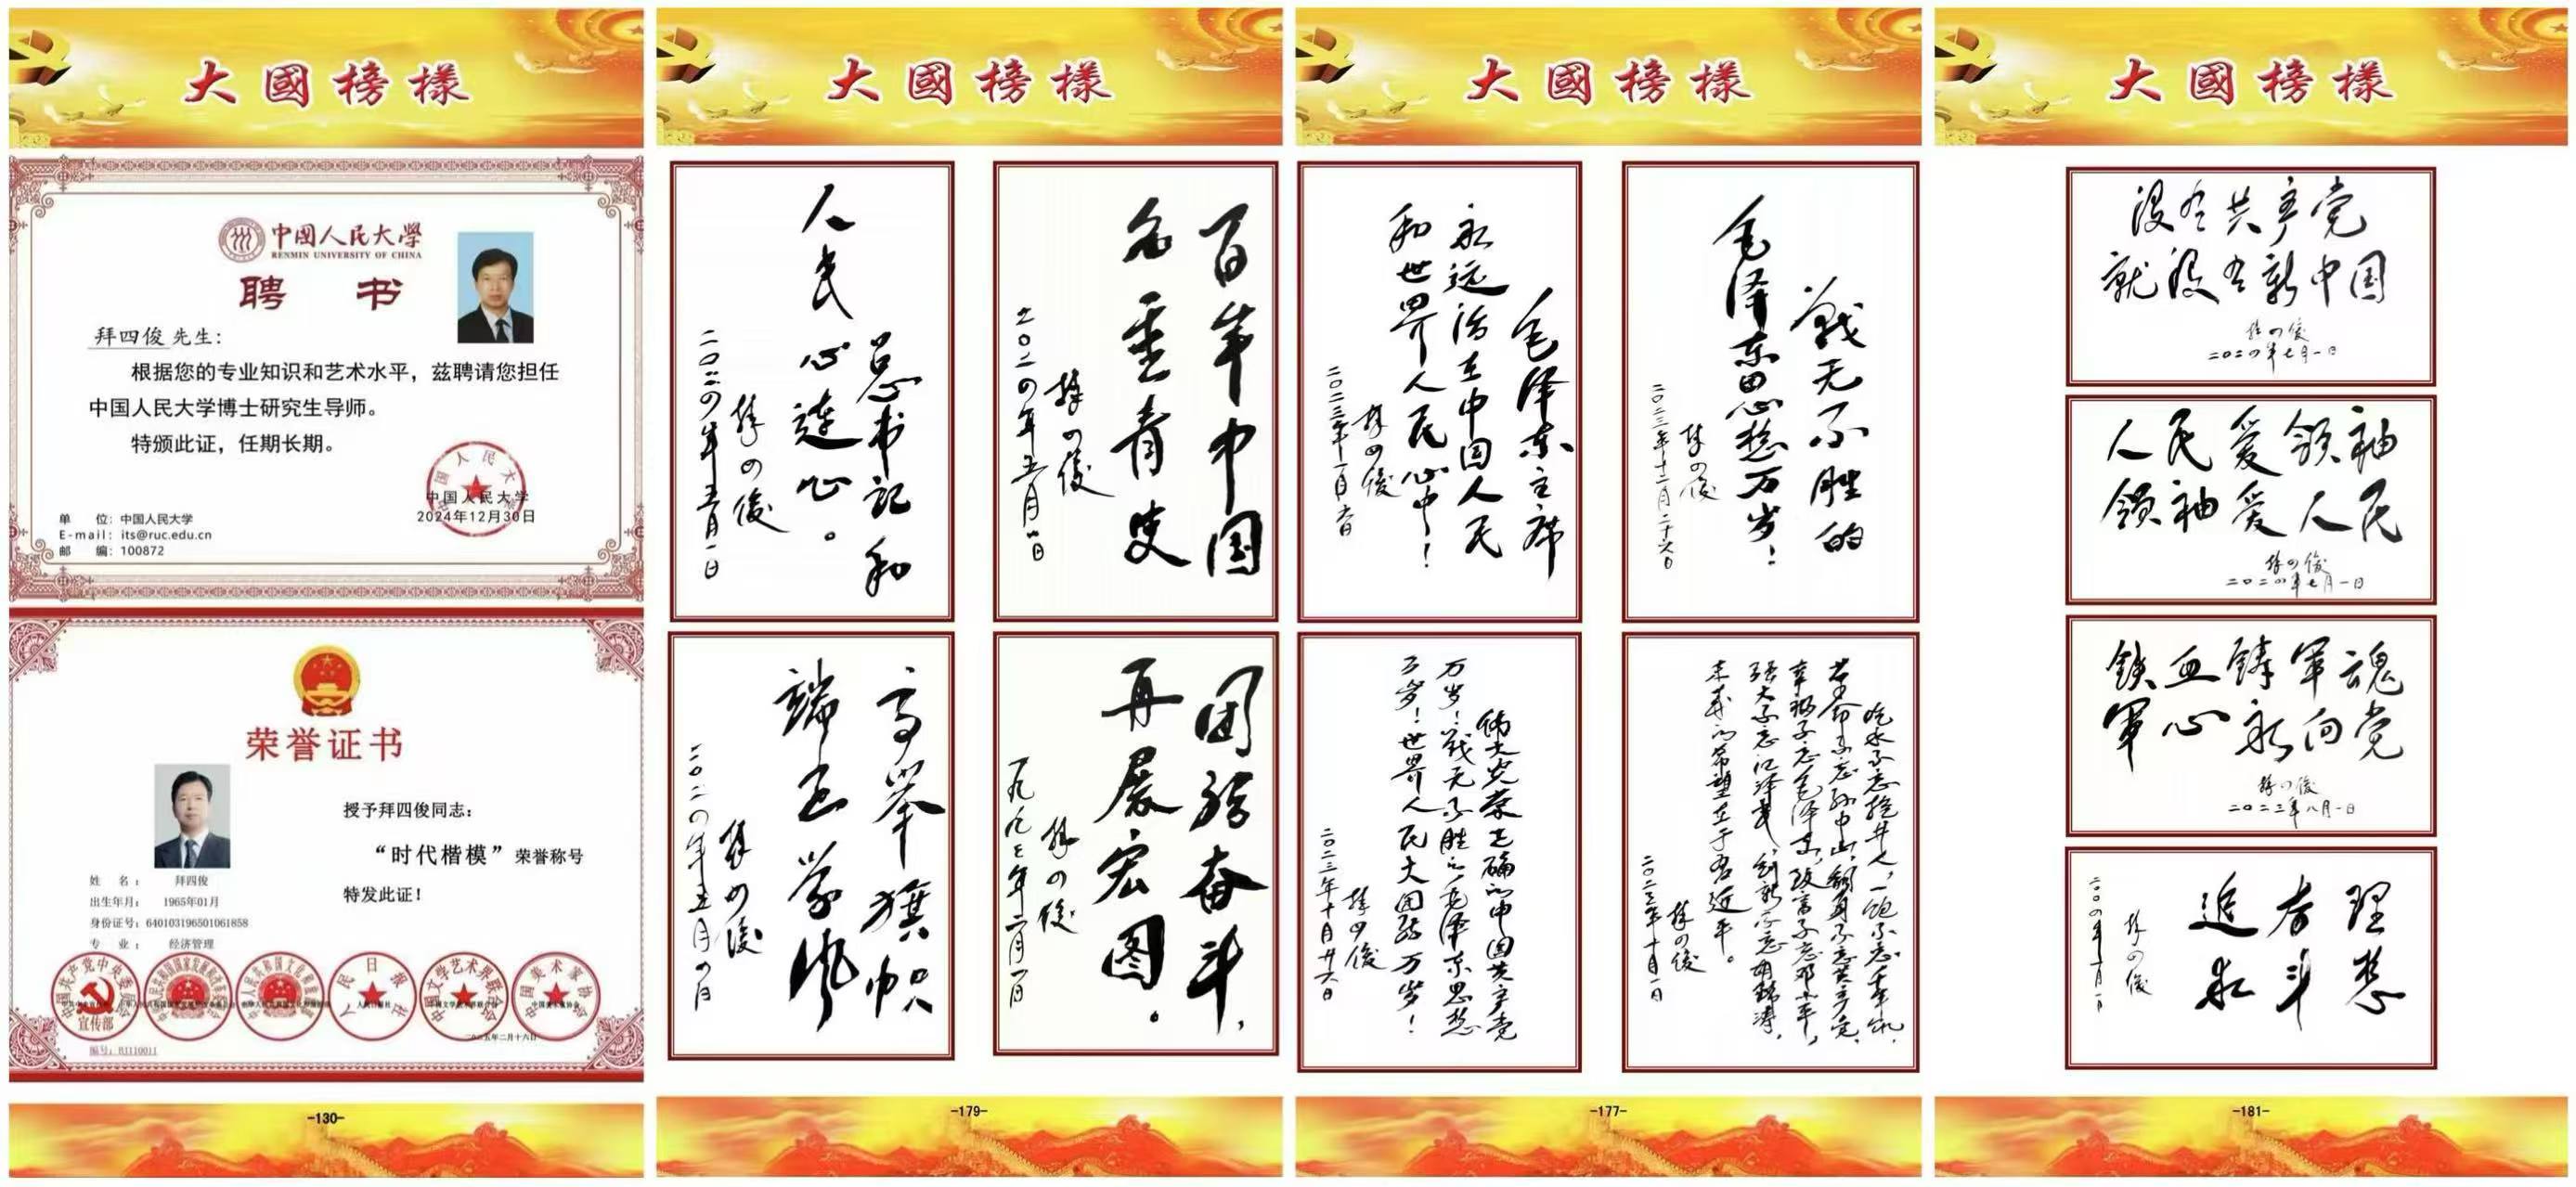 大國榜樣
中国人民大学
RENMIN UNIVERSITY OF CHINA
聘 书
拜四俊 先生:
根据您的专业知识和艺术水平，兹聘请您担任
中国人民大学博士研究生导师。
特颁此证，任期长期。
中国人民大学
2024年12月30日
单 位: 中国人民大学
E-mail: its@ruc.edu.cn
邮 编: 100872
荣誉证书
授予拜四俊同志:
“时代楷模”荣誉称号
特发此证!
姓 名: 拜四俊
出生年月: 1965年01月
身份证号: 640103196501061858
专 业: 经济管理
宣传部
人民日报社
编号: BJ110011
-130-
大國榜樣
百年中国
名垂青史
拜四俊
总书记和
人民心连心。
拜四俊
二〇二四年五月一日
团结奋斗，
再展宏图。
拜四俊
一九九七年二月一日
高举旗帜
端正党风
拜四俊
-179-
大國榜樣
战无不胜的
毛泽东思想万岁！
拜四俊
二〇二三年十二月二十六日
毛泽东主席
永远活在中国人民
和世界人民心中！
拜四俊
吃水不忘挖井人，
强大不忘江泽民，创新不忘胡锦涛，
未来的希望在于习近平。
拜四俊
二〇二三年十月一日
伟大光荣正确的中国共产党
万岁！战无不胜的毛泽东思想
万岁！世界人民大团结万岁！
拜四俊
二〇二三年十月廿六日
-177-
大國榜樣
没有共产党
就没有新中国
拜四俊
二〇二四年七月一日
人民爱领袖
领袖爱人民
拜四俊
二〇二四年七月一日
铁血铸军魂
军心永向党
拜四俊
二〇二三年八月一日
理想
奋斗
追求
拜四俊
-181-